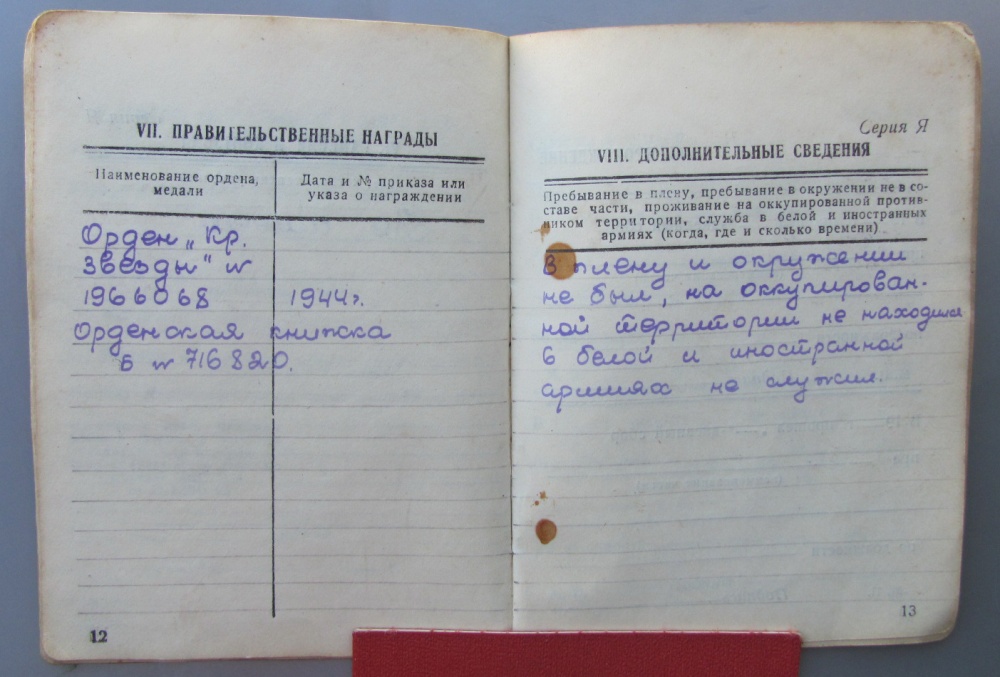 VII. ПРАВИТЕЛЬСТВЕННЫЕ НАГРАДЫ
Наименование ордена,
медали
Дата и № приказа или
указа о награждении
Орден „Кр.
Звезды" №
1966068 1944 г.
Орденская книжка
Б № 716820.
12
Серия Я
VIII. ДОПОЛНИТЕЛЬНЫЕ СВЕДЕНИЯ
Пребывание в плену, пребывание в окружении не в со-
ставе части, проживание на оккупированной против-
ником территории, служба в белой и иностранных
армиях (когда, где и сколько времени)
В плену и окружении
не был, на оккупирован-
ной территории не находился
в белой и иностранной
армиях не служил.
13